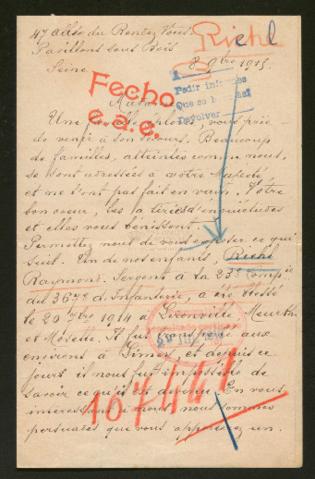 47 allée du Rendez Vous
Riehl
Pavillons sous Bois
Seine
8 9bre 1915
Fecho
e.a.e.
Pedir informe
Que se
Devolver
Une
de venir à son secours. Beaucoup
de familles, atteintes comme nous,
se sont adressées à votre Majesté,
et ne l'ont pas fait en vain. Votre
bon coeur, les a tirées d'inquiétudes
et elles vous bénissent.
Permettez nous de vous exposer ce qui
suit. Un de nos enfants, Riehl
Raymond. Sergent à la 23e Compie
du 367e d'Infanterie, a été blessé
le 20 7bre 1914 à Lironville, Meurthe
et Moselle. Il fut
environs à Limey, et depuis ce
jour il nous fut impossible de
savoir ce qu'il est devenu. En vous
intéressant à nous nous sommes
persuadés que vous apporterez un
107441